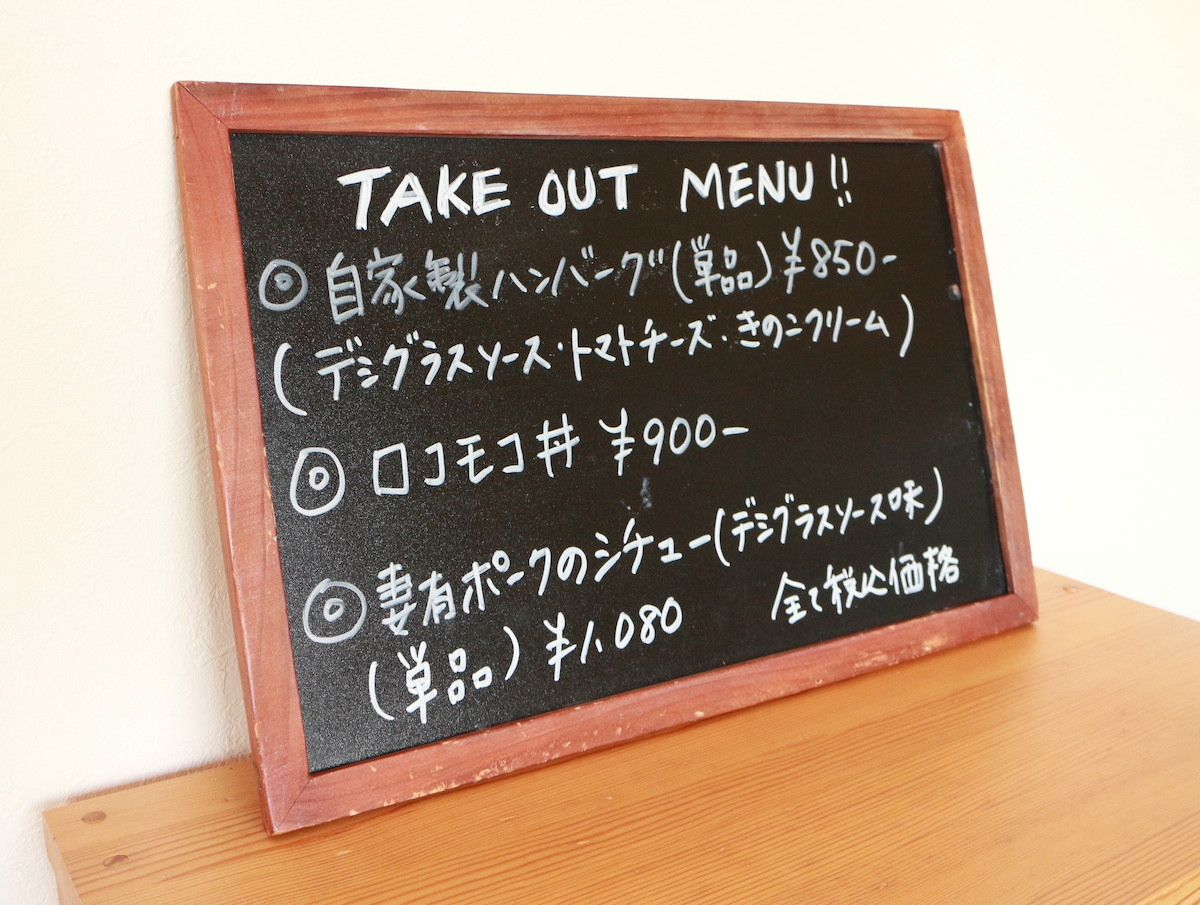 TAKE OUT MENU!!
◎ 自家製ハンバーグ(単品)¥850-
(デミグラスソース・トマトチーズ・きのこクリーム)
◎ ロコモコ丼 ¥900-
◎ 妻有ポークのシチュー(デミグラスソース味)
(単品)¥1,080
全て税込価格